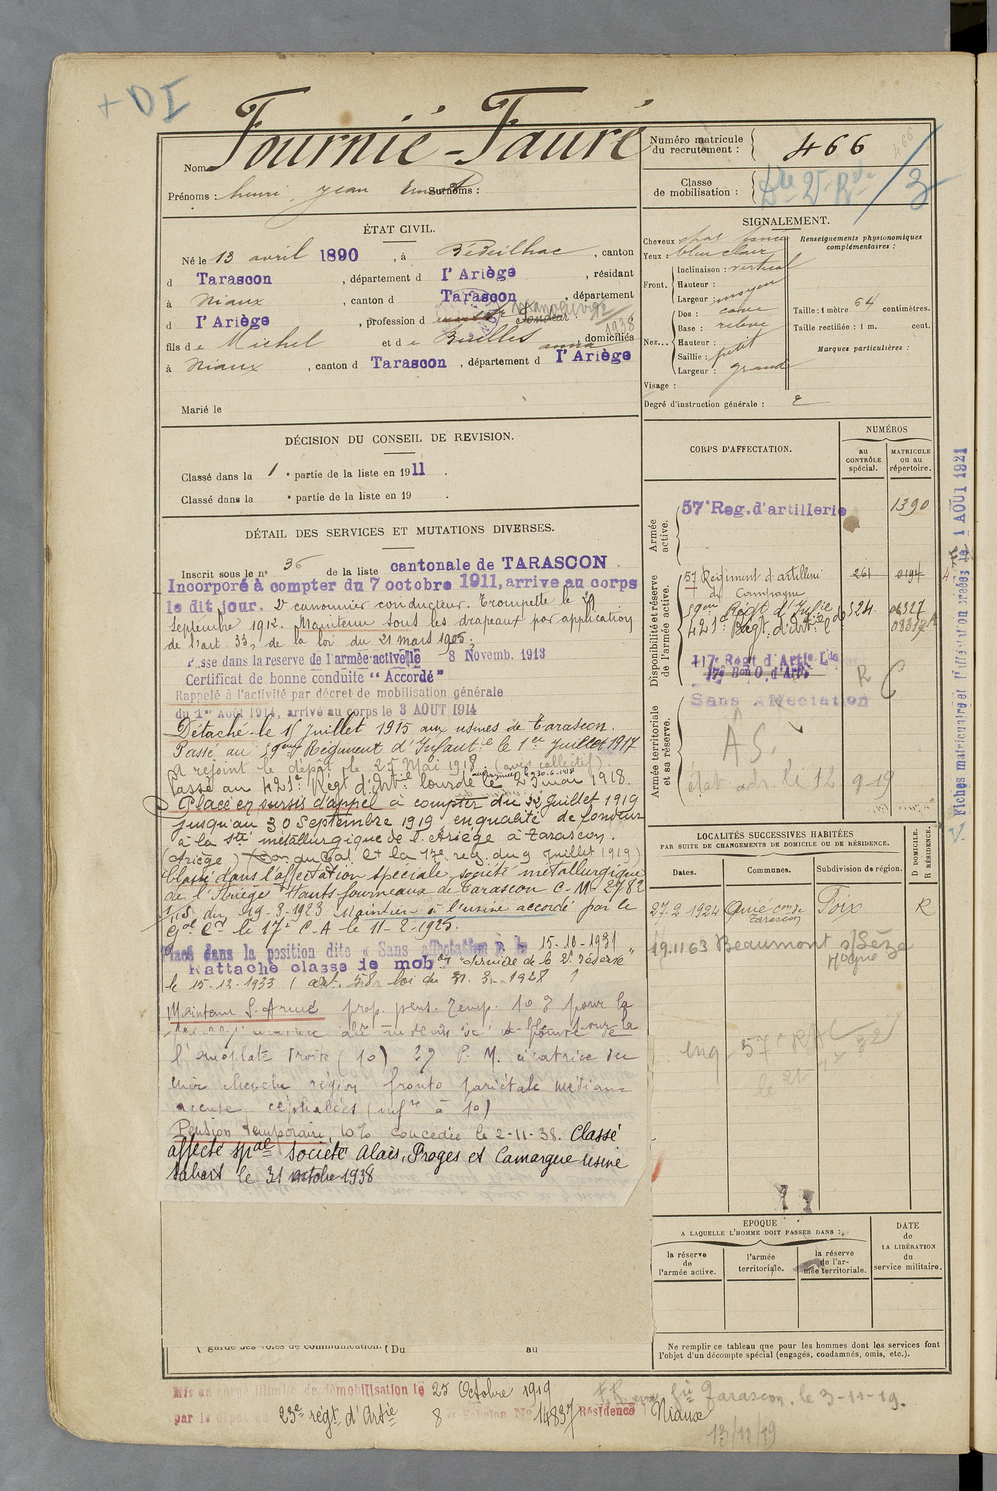 + DI
Nom Fournié-Fauré
Prénoms : henri jean Surnoms :
Numéro matricule du recrutement : 466
466
Classe de mobilisation :
/3
ÉTAT CIVIL.
Né le 13 avril 1890, à Bédeilhac, canton
d Tarascon, département d l'Ariège, résidant
à Niaux, canton d Tarascon, département
d l'Ariège, profession d
1938
fils de Michel et de domiciliés
à Niaux, canton d Tarascon, département d l'Ariège
Marié le
SIGNALEMENT.
Cheveux
Yeux : bleu clair
Front. Inclinaison : vertical
Hauteur :
Largeur : moyen
Nez... Dos : cave
Base : relevé
Hauteur :
Saillie : petit
Largeur : grand
Visage :
Degré d'instruction générale : 2
Renseignements physionomiques complémentaires :
Taille : 1 mètre 64 centimètres.
Taille rectifiée : 1 m. cent.
Marques particulières :
DÉCISION DU CONSEIL DE REVISION.
Classé dans la 1e partie de la liste en 1911.
Classé dans la e partie de la liste en 19 .
DÉTAIL DES SERVICES ET MUTATIONS DIVERSES.
Inscrit sous le n° 36 de la liste cantonale de TARASCON
Incorporé à compter du 7 octobre 1911, arrive au corps
le dit jour. 2e canonnier conducteur. Trompette le 29
Septembre 1912. Maintenu sous les drapeaux par application
de l'art. 33, de la loi du 21 mars 1905.
Passe dans la reserve de l'armée active le 8 Novemb. 1913
Certificat de bonne conduite "Accordé"
Rappelé à l'activité par décret de mobilisation générale
du 1er Août 1914, arrivé au corps le 3 AOUT 1914
Détaché le Juillet 1915 aux usines de Tarascon.
Passé au 59eme Régiment d'Infantie le 1er Juillet 1917
A rejoint le dépôt le 27 Mai 1918. (avis collectif).
Passé au 421e Régt d'Artie lourde le 29 mai 1918.
Placé en sursis d'appel à compter du 22 Juillet 1919
jusqu'au 30 Septembre 1919 en qualité de fondeur
à la Sté métallurgique de l'Ariège à Tarascon.
(Ariège) la 17e reg. du 9 Juillet 1919)
Classé dans l'affectation spéciale société métallurgique
de l'Ariège Hauts fourneaux de Tarascon C. M. 2782
du 19-3-1923 Maintien à l'usine accordé par le
Gal Ct le 17e C.A le 11-2-1925.
Placé dans la position dite « Sans affectation » le 15-10-1931
Rattaché classe de mob on "dernière de la 2e réserve"
le 15-12-1933 (art. 58 loi du 31.3.1928)
Maintenu S. Armé prop. pens. temp. 10 % pour la
l'omoplate droite (10) 2° P. M. cicatrice du
cuir chevelu région fronto pariétale médiane
accuse céphalées (infre à 10)
Pension temporaire, 10% concédée le 2-11-38. Classé
affecté spal société Alais, Froges et Camargue usine
Sabart le 31 octobre 1938
CORPS D'AFFECTATION.
NUMÉROS
AU CONTRÔLE spécial.
MATRICULE ou au répertoire.
Armée active.
57e Reg. d'artillerie 1390
Disponibilité et réserve de l'armée active.
57 Régiment d'artillerie 261
de Campagne
59eme Régt d'Infie 524
421e Régt. d'Artie
117e Régt d'Artie Lde
Sans affectation
R C
Armée territoriale et sa réserve.
A S.
12.9.19
Fiches matriculaire et d'affectation créées le 1 AOUT 1921
LOCALITÉS SUCCESSIVES HABITÉES
PAR SUITE DE CHANGEMENTS DE DOMICILE OU DE RÉSIDENCE.
Dates. Communes. Subdivision de région. D DOMICILE. R RÉSIDENCE.
27.2.1924 Tarascon Foix R
19.11 63 Beaumont s/Lèze
57e
EPOQUE
A LAQUELLE L'HOMME DOIT PASSER DANS :
la réserve de l'armée active.
l'armée territoriale.
la réserve de l'armée territoriale.
DATE de LA LIBÉRATION du service militaire.
Ne remplir ce tableau que pour les hommes dont les services font
l'objet d'un décompte spécial (engagés, condamnés, omis, etc.).
garde des voies de communication. (Du au
Mis en congé illimité de démobilisation le 25 Octobre 1919
par le dépôt du 23e régt. d'Artie 8e Echelon No 14837 Résidence Niaux
Tarascon. le 3-11-19.
13/11/19